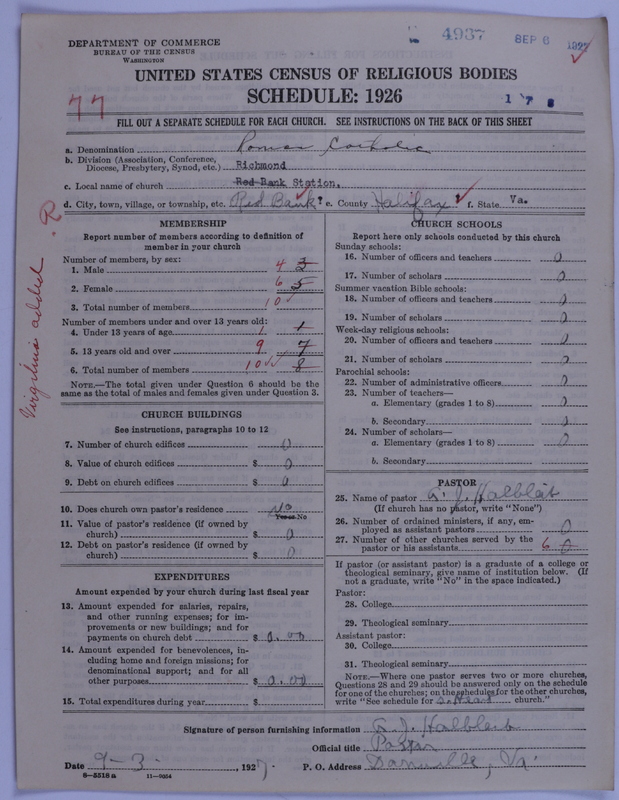 4937
SEP 6 192
DEPARTMENT OF COMMERCE
BUREAU OF THE CENSUS
WASHINGTON
UNITED STATES CENSUS OF RELIGIOUS BODIES
SCHEDULE: 1926
77
1 7 8
FILL OUT A SEPARATE SCHEDULE FOR EACH CHURCH. SEE INSTRUCTIONS ON THE BACK OF THIS SHEET
a. Denomination Roman Catholic
b. Division (Association, Conference, Diocese, Presbytery, Synod, etc.) Richmond
c. Local name of church Red Bank Station.
d. City, town, village, or township, etc. Red Bank? e. County Halifax f. State Va.
R
Virgilina added
MEMBERSHIP
Report number of members according to definition of
member in your church
Number of members, by sex:
1. Male 4 3
2. Female 6 5
3. Total number of members 10
Number of members under and over 13 years old:
4. Under 13 years of age 1 1
5. 13 years old and over 9 7
6. Total number of members 10 8
NOTE.—The total given under Question 6 should be the
same as the total of males and females given under Question 3.
CHURCH BUILDINGS
See instructions, paragraphs 10 to 12
7. Number of church edifices 0
8. Value of church edifices $ 0
9. Debt on church edifices $ 0
10. Does church own pastor's residence No
Yes or No
11. Value of pastor's residence (if owned by
church) $ 0
12. Debt on pastor's residence (if owned by
church) $ 0
EXPENDITURES
Amount expended by your church during last fiscal year
13. Amount expended for salaries, repairs,
and other running expenses; for im-
provements or new buildings; and for
payments on church debt $ 0.00
14. Amount expended for benevolences, in-
cluding home and foreign missions; for
denominational support; and for all
other purposes $ 0.00
15. Total expenditures during year $
CHURCH SCHOOLS
Report here only schools conducted by this church
Sunday schools:
16. Number of officers and teachers 0
17. Number of scholars 0
Summer vacation Bible schools:
18. Number of officers and teachers 0
19. Number of scholars 0
Week-day religious schools:
20. Number of officers and teachers 0
21. Number of scholars 0
Parochial schools:
22. Number of administrative officers 0
23. Number of teachers—
a. Elementary (grades 1 to 8) 0
b. Secondary 0
24. Number of scholars—
a. Elementary (grades 1 to 8) 0
b. Secondary
PASTOR
25. Name of pastor G. J. Halbleib
(If church has no pastor, write "None")
26. Number of ordained ministers, if any, em-
ployed as assistant pastors 0
27. Number of other churches served by the
pastor or his assistants 6 0
If pastor (or assistant pastor) is a graduate of a college or
theological seminary, give name of institution below. (If
not a graduate, write "No" in the space indicated.)
Pastor:
28. College
29. Theological seminary
Assistant pastor:
30. College
31. Theological seminary
NOTE.—Where one pastor serves two or more churches,
Questions 28 and 29 should be answered only on the schedule
for one of the churches; on the schedules for the other churches,
write "See schedule for S. Heart church."
Signature of person furnishing information G. J. Halbleib
Official title Pastor
Date 9-3- , 1927 P. O. Address Danville, Va.
8—5518 a 11—9054